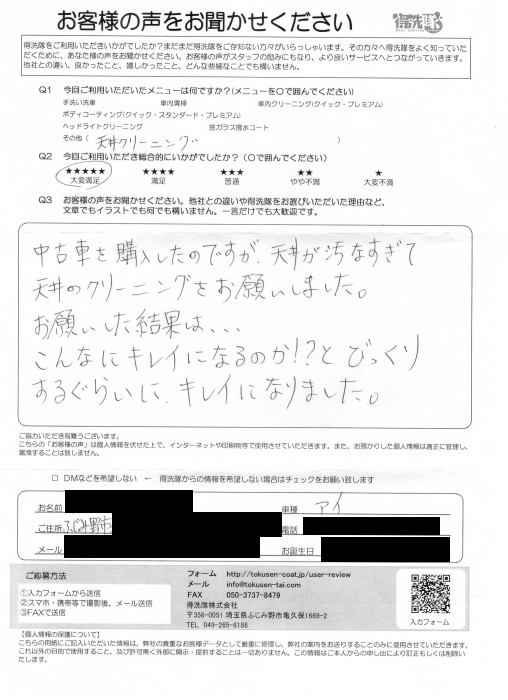 お客様の声をお聞かせください
得洗隊
得洗隊をご利用いただきいかがでしたか？まだまだ得洗隊をご存知ない方々がいらっしゃいます。その方々へ得洗隊をよく知っていた
だくために、あなた様の声をお聞かせください。お客様の声がスタッフの励みにもなり、より良いサービスへとつながっていきます。
他社との違い、良かったこと、嬉しかったこと、どんな些細なことでも構いません。
Q1 今回ご利用いただいたメニューは何ですか？（メニューを〇で囲んでください）
手洗い洗車 車内清掃 車内クリーニング（クイック・プレミアム）
ボディコーティング（クイック・スタンダード・プレミアム）
ヘッドライトクリーニング 窓ガラス撥水コート
その他（ 天井クリーニング ）
Q2 今回ご利用いただき総合的にいかがでしたか？（〇で囲んでください）
★★★★★ ★★★★ ★★★ ★★ ★
大変満足 満足 普通 やや不満 大変不満
Q3 お客様の声をお聞かせください。他社との違いや得洗隊をお選びいただいた理由など、
文章でもイラストでも何でも構いません。一言だけでも大歓迎です。
中古車を購入したのですが、天井が汚なすぎて
天井のクリーニングをお願いしました。
お願いした結果は、、、
こんなにキレイになるのか!?とびっくり
するぐらいに、キレイになりました。
ご協力いただき有難うございます。
こちらの「お客様の声」は個人情報を伏せた上で、インターネットや印刷物等で使用させていただきます。また、お預かりした個人情報は適正に管理し、
漏洩することは致しません。
□ DMなどを希望しない ← 得洗隊からの情報を希望しない場合はチェックをお願い致します
お名前 車種 アイ
ご住所 ふじみ野市 電話
メール お誕生日
ご応募方法
①入力フォームから送信
②スマホ・携帯等で撮影後、メール送信
③FAXで送信
フォーム http://tokusen-coat.jp/user-review
メール info@tokusen-tai.com
FAX 050-3737-8479
得洗隊株式会社
〒356-0051 埼玉県ふじみ野市亀久保1669-2
TEL 049-265-8186
入力フォーム
【個人情報の保護について】
こちらの用紙にご記入いただいた情報は、弊社の貴重なお客様データとして厳重に管理し、弊社の案内をお送りすることのみに使用させていただきます。
これ以外の目的で使用すること、及び許可無く外部に開示・提供することは一切ありません。この情報はご本人からの申し出により訂正もしくは削除い
たします。